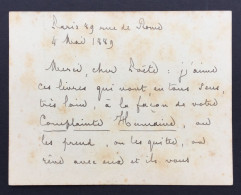 Paris 89 rue de Rome
4 Mai 1889
Merci, cher Poète : j'aime
ces livres qui vont en tous sens,
très loin, à la façon de votre
Complainte Humaine, on
les prend, on les quitte, on
rêve avec eux et ils vous